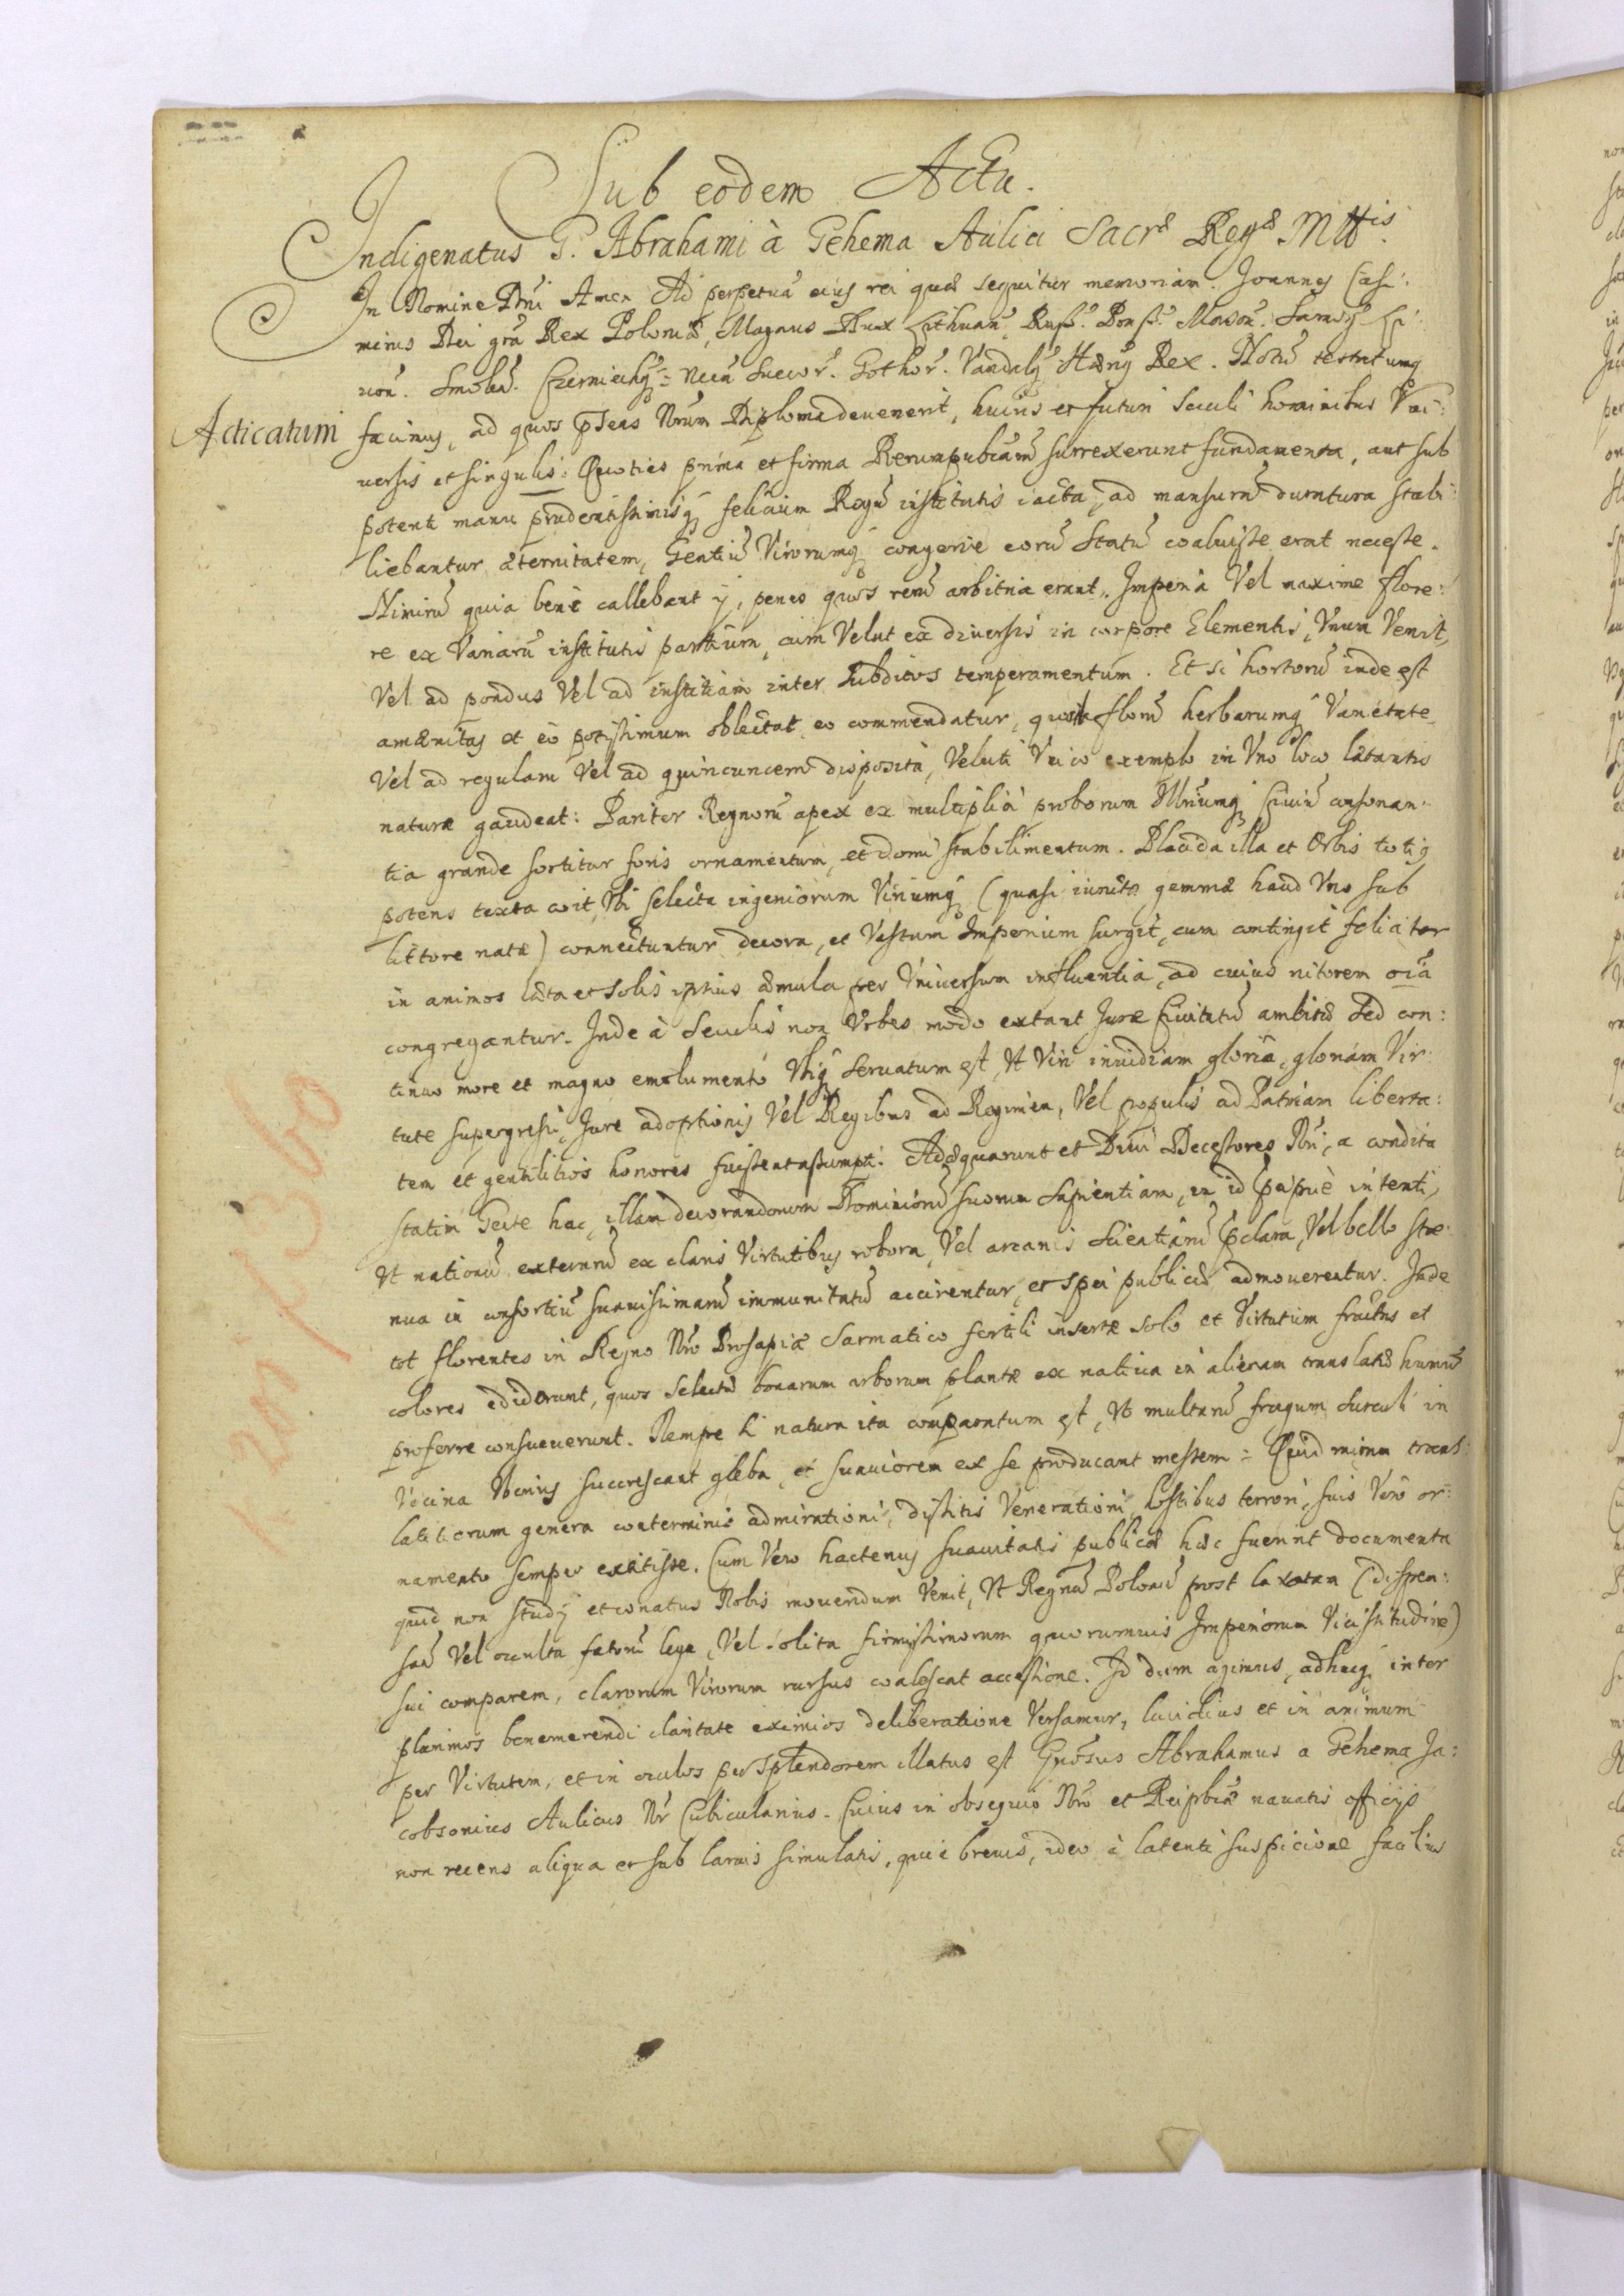 Sub eodem Actu.
Indigenatus G. Abrahami à Gehema Aulici Sacræ Regæ Mttis
In Nomine Dni Amen Ad perpetuã eius rei quæ sequitur memoriam. Joannes Casi:
mirus Dei grã Rex Poloniæ, Magnus Dux Lithuan. Russ. Pruss. Masov. Samog. Li
uon. Smolen. Czerniechq. Necn Suecor. Gothor. Vandalq. Hæreq Rex. Notũ testatumq
Acticatum
facimus, ad quos pñteas Nrum Diploma deuenerit, huius et futuri Seculi hominibus Vni:
uersis et singulis: Quoties prima et firma Rerumpublicarũ surrexerunt fundamenta, aut sub
potenti manu prudentissimisq felicium Regũ institutis iacta, ad mansuram duratura stabi:
liebantur æternitatem, Gentiũ Virorumq congerie eorũ Statũ coaluisse erat necesse.
Nimirũ quia benè callebant ij, penes quos rerũ arbitria erant, Imperia Vel maxime flore:
re ex Variarũ institutis partium, cum Velut ex diuersis in corpore Elementis, Vnum Venit,
Vel ad pondus Vel ad iustitiam inter Subditos temperamentum. Et si hortorũ inde est
amænitas et eò potissimum oblectat, eo commendatur, quod florũ herbarumq Varietate
Vel ad regulam Vel ad quincuncem disposita, Veluti Vnico exemplo in Vno loco lætantis
naturæ gaudeat: Pariter Regnorũ apex ex multiplici proborum Illriumq Ciuiũ consonan:
tia grande sortitur foris ornamentum, et domi stabilimentum. Placida illa et Orbis totiq
potens texta coit, Vbi selecta ingeniorum Viriumq (quasi iunctæ gemmæ haud Vno sub
littore natæ) connectuntur decora, et Vastum Imperium surgit, cum contingit feliciter
in animos læta et Solis ipsius æmula per Vniuersum influentia, ad cuius nitorem oĩa
congregantur. Inde à Seculis non Vrbes modo extant Juræ Ciuitatũ ambitæ Sed con:
tinuo more et magno emolumento Vbiq seruatum est, Vt Viri inuidiam gloria, gloriam Vir:
tute supergressi, Jure adoptionis Vel Regibus ad Regimen, Vel populis ad Patriam liberta:
tem et gentilitios honores fuissent assumpti. Adæquarunt et Diui Decessores Nri, a condita
statim Gente hac, illam decorandorum Dominiorũ suorum Sapientiam, in id præcipuè intenti,
Vt nationũ externarũ ex claris Virtutibus robora, Vel arcanis Scientiarũ præclara, Vel bello stre:
nua in consortiũ suauissimarũ immunitatũ accirentur, et spei publicæ admouerentur. Inde
tot florentes in Regno Nro Prosapiæ Sarmatico fertili insertæ solo et Virtutum fructus et
colores ediderunt, quos Selectũ bonarum arborum plantæ ex natiua in alienam translatæ humũ
proferre consueuerunt. Nempe si natura ita comparatum est, Vt multarũ frugum surculi in
Vicina Vberius succrescant gleba, et suauiorem ex se producant messem: Quid mirum trans:
latitiorum genera conterminis admirationi, dissitis Venerationi, hostibus terrori, suis Verò or:
namento semper extitisse. Cum Vero hactenus suauitatis publicæ hæc fuerint documenta
quid non studij et conatus Nobis mouendum Venit, Vt Regnũ Poloniæ post laxatam (dispen:
san Vel occulta fatorũ lege, Vel solita firmissimorum quorumuis Imperiorum Vicissitudine)
sui comparem, clarorum Virorum rursus coalescat accessione. Id dum agimus, adhucq inter
plurimos benemerendi claritate eximios deliberatione Versamur, lucidius et in animum
per Virtutem, et in oculos per splendorem illatus est Gnosus Abrahamus a Gehema Ja:
cobsonius Aulicus Nr Cubicularius. Cuius in obsequio Nro et Reipblicæ nauatis officijs
non recens aliqua et sub laruis simulatis, quæ breuis, ideo à latenti suspicione facilius